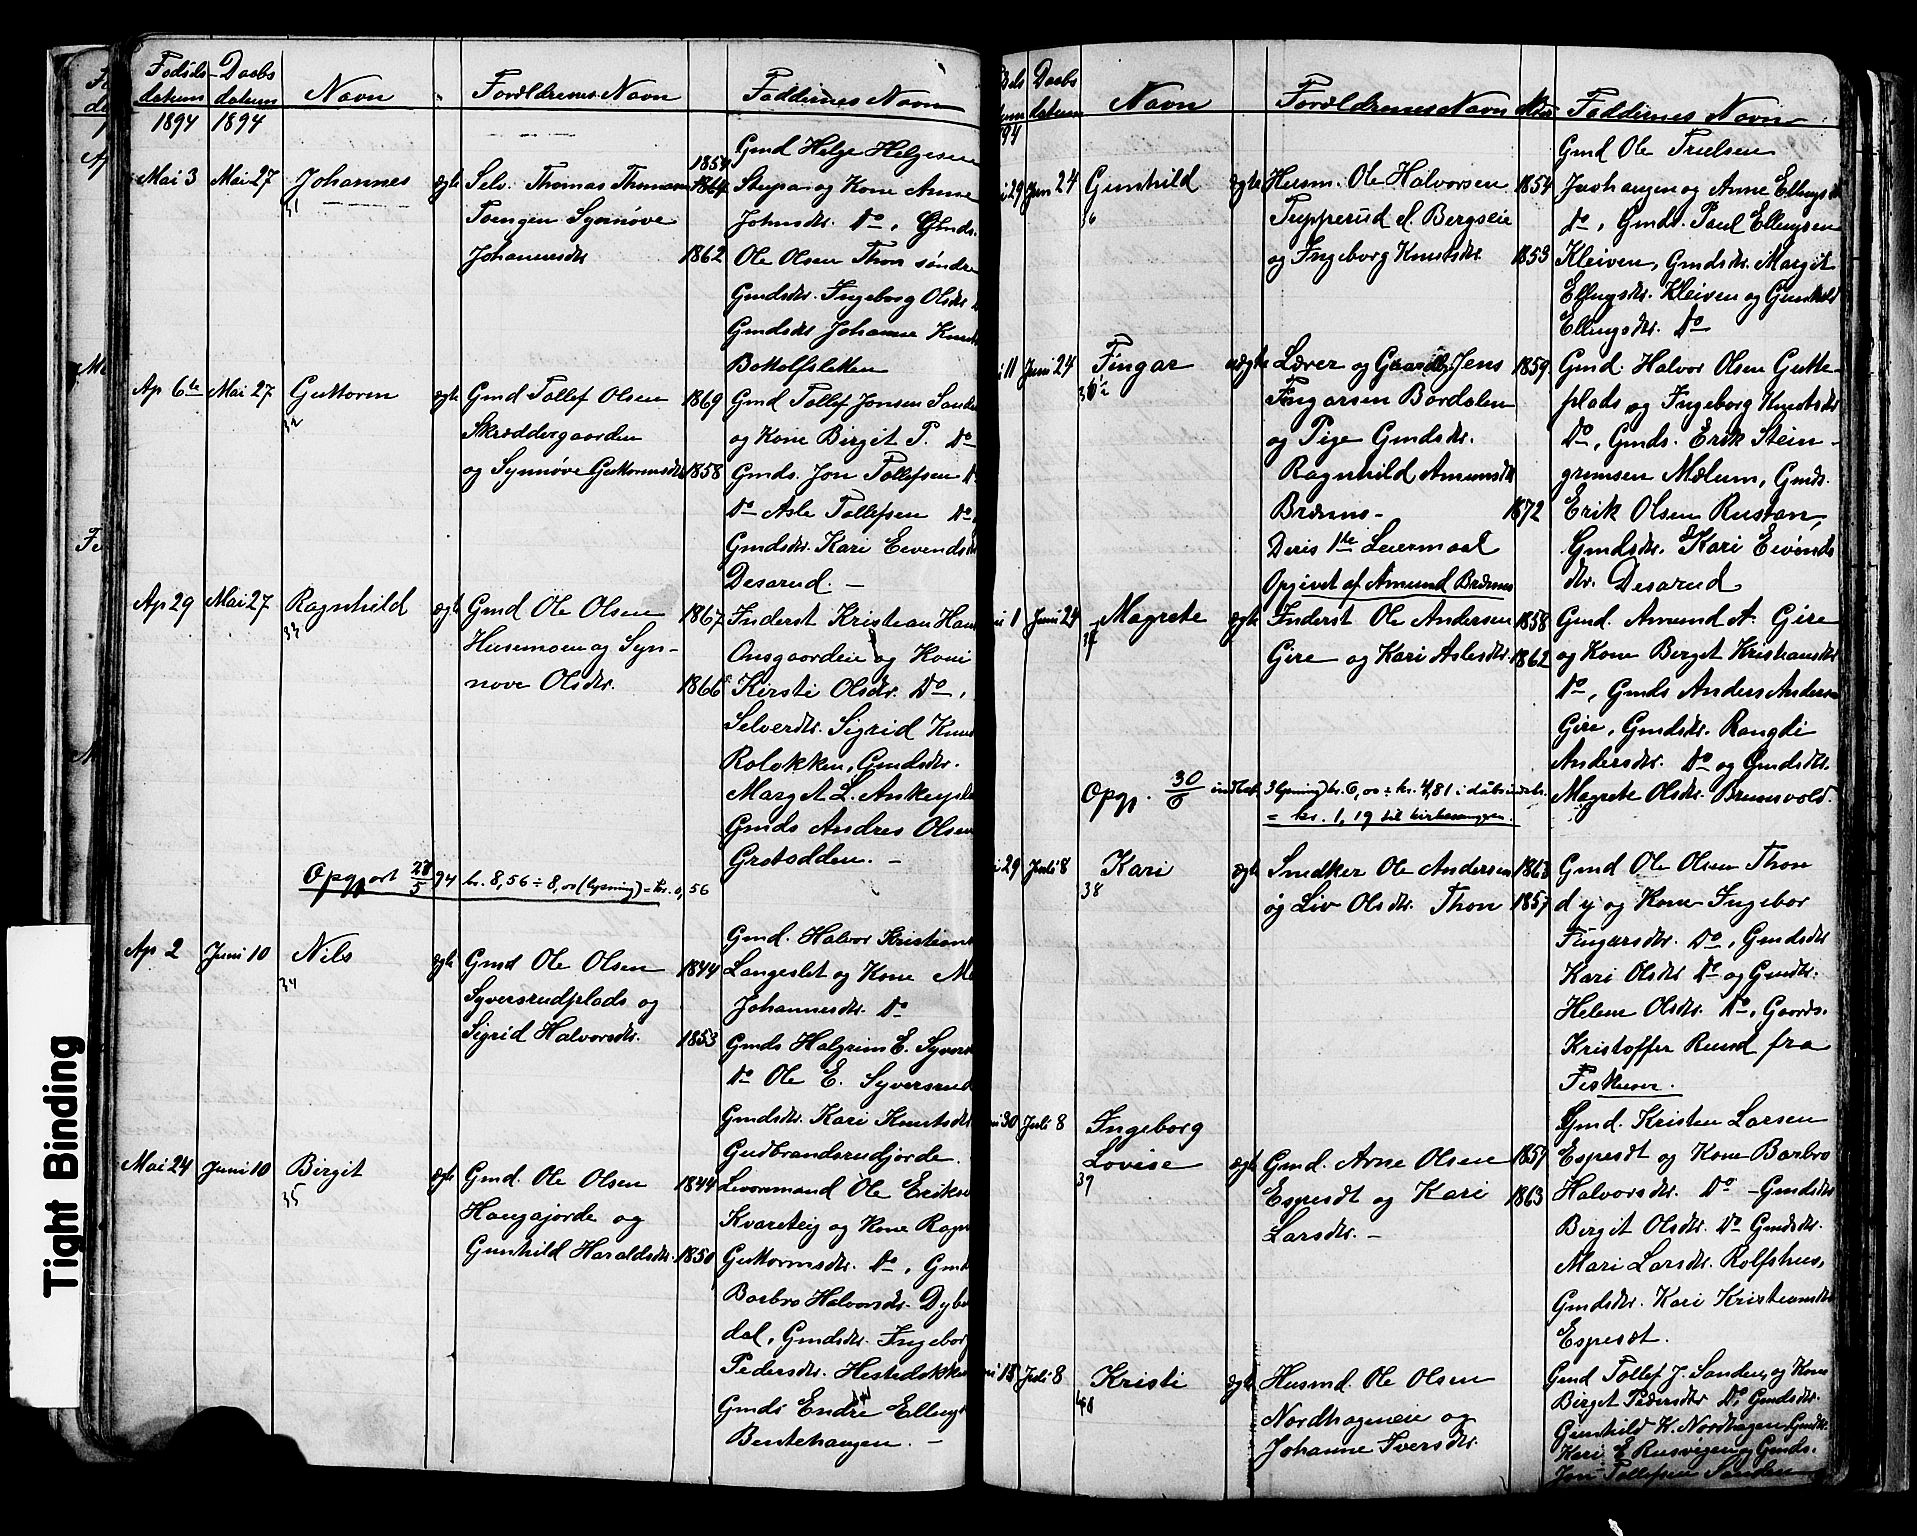 Fødsels- Daabs
datum datum Navn Forældrenes Navn Faddernes Navn
1894 1894
Gmd Helge Helgesen
Mai 3 Mai 27 Johannes ægte Selv. Thomas 1864 og Kone Anne
31
Toengen Synnøve Johnsdtr. Do, Gmds.
Johannesdtr 1862 Ole Olsen Thon søndre
Gmdsdtr. Ingeborg Olsdtr
Gmdsdtr Johanne
Bakolfsletten
Ap 6te Mai 27 Guttorm ægte Gmd Tollef Olsen 1869 Gmd Tollef Jonsen
32
Skræddergaarden og Kone Birgit P. Do
og Synnøve Guttormsdtr 1858 Gmds. Jon Tollefsen
Do Asle Tollefsen Do
Gmdsdtr. Kari
Desarud. -
Ap 29 Mai 27 Ragnhild ægte Gmd Ole Olsen 1867 Inderst Kristian
33
Husemoen og Syn- Onsgaardeie og Kone
nove Olsdtr. 1866 Kirsti Olsdtr. Do,
Selverdtr. Sigrid
Rolokken, Gmdsdtr.
Marget L.
Gmds Andres Olsen
Grotodden. -
Opgjort 28/5 94 kr. 8,56 ÷ 8,00 (lysning) = kr. 0,56
Gmd. Halvor
Ap 2 Juni 10 Nils ægte Gmd Ole Olsen 1844 Langeslet og Kone
34
Syversrudplads og Johannesdtr. Do
Sigrid Halvorsdtr. 1853 Gmds Halgrim E.
Do Ole E. Syversrud
Gmdsdtr. Kari Knutsdtr
Gudbrandsrudjorde.
Mai 24 Juni 10 Birgit ægte Gmd. Ole Olsen 1844 Ole
35
Haugajorde og Kvarteig og Kone
Gunhild Haraldsdtr. 1850 Guttormsdtr. Do,
Barbro Halvorsdtr.
dal, Gmdsdtr. Ingeborg
Pedersdtr.
Gmds Endre
Bentehaugen. -
Daabs
datum Navn Forældrenes Navn Alder Faddernes Navn
94
Gmd Ole Truelsen
29 Juni 24 Gunhild ægte Husm. Ole Halvorsen 1854 Jushaugen og Anne
"
Tupperud d. Bergseie Do, Gmds. Paul Ellingsen
og Ingeborg Knutsdtr 1853 Kleiven, Gmdsdtr. Margit
Ellingsdtr. Kleiven og Gunhild
Ellingsdtr. Do
11 Juni 24 Fingar uægte Lærer og Jens 1859 Gmd. Halvor Olsen Gutte-
36
Fingarsen Bordalen plads og Ingeborg Knutsdtr
og Pige Gmdsdtr. Do, Gmds. Erik Stein-
Ragnhild Amundsdtr grimsen Mælum, Gmds.
Brænno- 1872 Erik Olsen Rustan,
Deris 1te Leiermaal Gmdsdtr. Kari Eivinds
Opgivet af Amund Brænno dtr. Desarud
1 Juni 24 Magrete ægte Inderst Ole Andersen 1858 Gmd. Amund A. Gire
37
Gire og Kari Aslesdtr. 1862 og Kone Berget Kristiansdtr
Do, Gmds Anders Anders
Gire, Gmdsdtr. Rangdi
Andersdtr. Do og Gmdsdtr.
Opgj. 30/6 kr. 6,00 ÷ kr. 4,81 Magrete Olsdtr. Brunsvold.
= kr. 1,19 til
29 Juli 8 Kari ægte Snedker Ole Andersen 1863 Gmd Ole Olsen Thon
38
og Liv Olsdtr. Thon 1857 d y og Kone Ingebor
Fingarsdtr. Do, Gmdsdtr
Kari Olsdtr Do og Gmdsdtr.
Helene Olsdtr. Do, Gaards.
Kristoffer Ruud fra
Fiskum.
30 Juli 8 Ingeborg Gmd. Kristen Larsen
Lovise ægte Gmd. Arne Olsen 1859 Espesdt og Kone Barbro
39
Espesdt og Kari 1863 Halvorsdtr. Do - Gmdsdtr
Larsdtr. - Birgit Olsdtr. Do Gmdsdtr.
Mari Larsdtr. Rolfshus,
Gmdsdtr. Kari Kristiansdtr
Espesdt.
15 Juli 8 Kristi ægte Husmd. Ole Olsen Gmd Tollef J. Sanden og Kone
40
Nordhageneie og Birget Pedersdtr Do, Gmdsdtr.
Johanne Iversdtr. Gunhild K. Nordhagen, Gmdsdtr.
Kari E. og Gmds.
Jon Tollefsen Sanden
Tight Binding